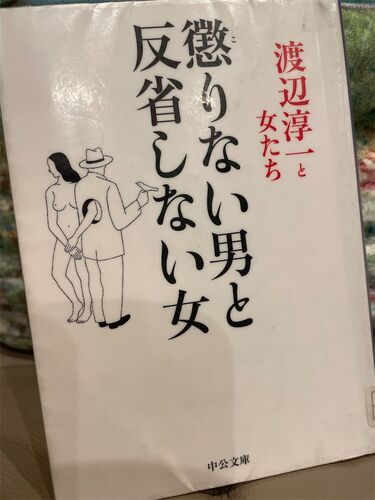 渡辺淳一と
女たち
懲りない男と
反省しない女
こ
中公文庫